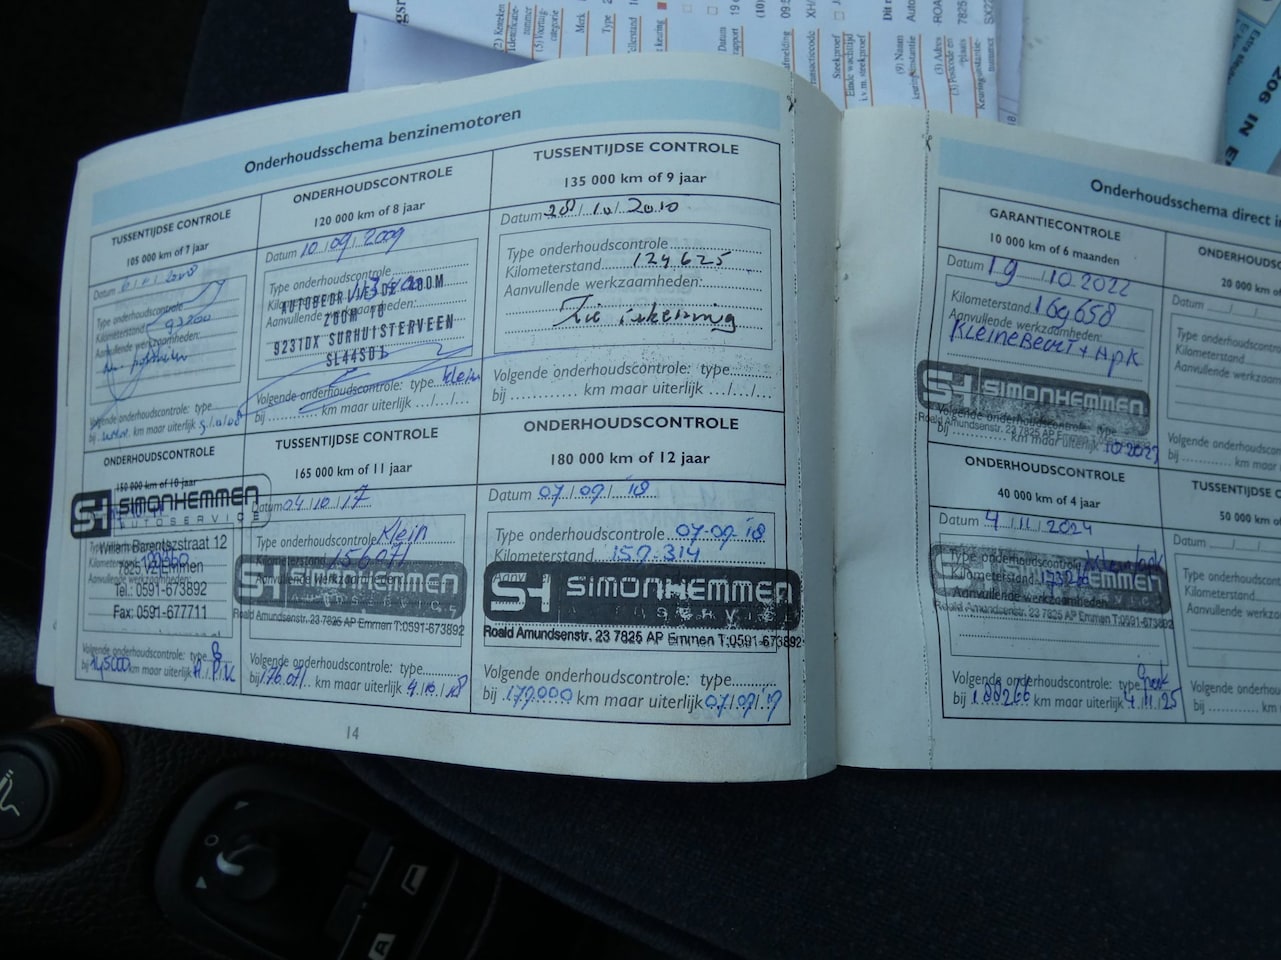 Onderhoudsschema benzinemotoren
TUSSENTIJDSE CONTROLE
105 000 km of 7 jaar
Datum
Type onderhoudscontrole
Kilometerstand 97200
Aanvullende werkzaamheden:
Volgende onderhoudscontrole: type
bij km maar uiterlijk
ONDERHOUDSCONTROLE
120 000 km of 8 jaar
Datum 10/09/2009
Type onderhoudscontrole
AUTOBEDRIJF DE ZOOM
Aanvullende werkzaamheden:
ZOOM
9231DX SURHUISTERVEEN
Volgende onderhoudscontrole: type klein
bij km maar uiterlijk .../.../...
TUSSENTIJDSE CONTROLE
135 000 km of 9 jaar
Datum 28/10/2010
Type onderhoudscontrole
Kilometerstand 124625
Aanvullende werkzaamheden:
Volgende onderhoudscontrole: type
bij km maar uiterlijk .../.../...
ONDERHOUDSCONTROLE
150 000 km of 10 jaar
SH SIMONHEMMEN
AUTOSERVICE
Willem Barentszstraat 12
7825 VZ Emmen
Aanvullende werkzaamheden:
Tel.: 0591-673892
Fax: 0591-677711
Volgende onderhoudscontrole: type B
bij 145000 km maar uiterlijk A.P.K
TUSSENTIJDSE CONTROLE
165 000 km of 11 jaar
Datum 04/10/17
Type onderhoudscontrole Klein
Kilometerstand 156071
SH HEMMEN
Roald Amundsenstr. 23 7825 AP Emmen T:0591-673892
Volgende onderhoudscontrole: type
bij 176.071 km maar uiterlijk 4/10/18
ONDERHOUDSCONTROLE
180 000 km of 12 jaar
Datum 07/09/'18
Type onderhoudscontrole 07-09-'18
Kilometerstand 159.314
SH SIMONHEMMEN
AUTOSERVICE
Roald Amundsenstr. 23 7825 AP Emmen T:0591-673892
Volgende onderhoudscontrole: type
bij 179.000 km maar uiterlijk 07/09/'19
14
Onderhoudsschema direct in
GARANTIECONTROLE
10 000 km of 6 maanden
Datum 19/10.2022
Kilometerstand 169658
Aanvullende werkzaamheden:
Kleine Beurt + Apk
SH SIMONHEMMEN
Volgende onderhoudscontrole: type
Roald Amundsenstr. 23 7825 AP Emmen
bij km maar uiterlijk 10/2023
ONDERHOUDSC
20 000 km
Datum .../.../...
Type onderhoudscontr
Kilometerstand
Aanvullende werkzaam
Volgende onderhoudsc
bij km
ONDERHOUDSCONTROLE
40 000 km of 4 jaar
Datum 4/11/2024
Type onderhoudscontrole Klein + apk
Kilometerstand
HEMMEN
Aanvullende werkzaamheden
Roald Amundsenstr. 23 7825 AP Emmen T:0591-673892
Volgende onderhoudscontrole: type Groot
bij 188266 km maar uiterlijk 4/11/25
TUSSENTIJDSE C
50 000 km
Datum .../.../...
Type onderhoudscont
Kilometerstand
Aanvullende werkzaa
Volgende onderhouds
bij km
(2) Kenteken
Identificatie-
nummer
(5) Voertuig-
categorie
Merk
Type
Datum
rapport
Steekproef
Einde wachttijd
i.v.m. steekproef
(9) Naam
keuringsinstantie
(3) Adres
(3) Postcode en
plaats
Keuringsinstantie-
nummer
Auto
ROA
7825
SX22
206 IN